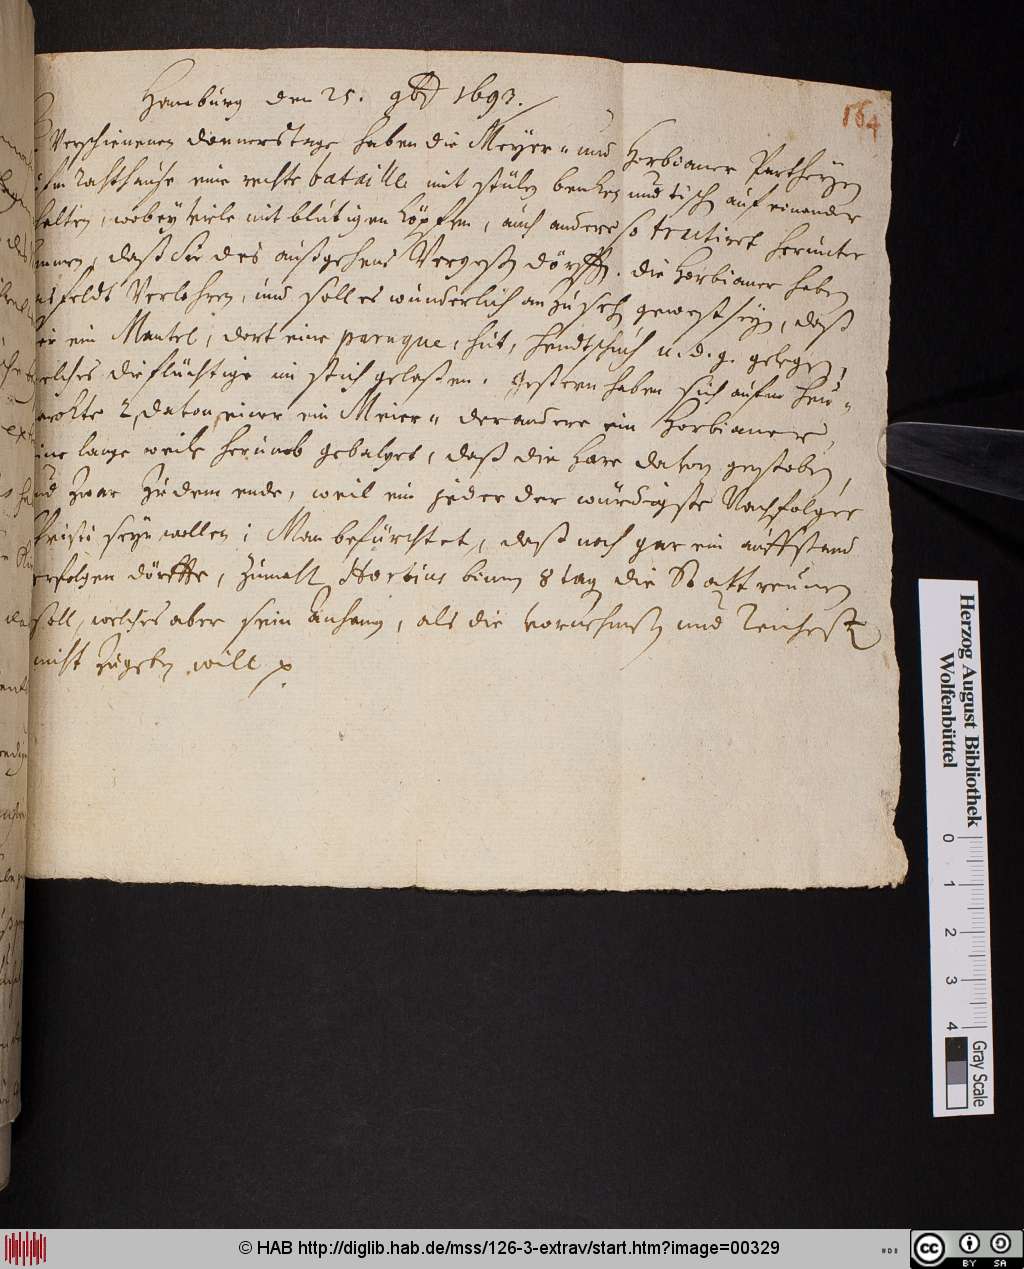 Hamburg den 25. 9br 1693.
164
Verschienenen donnerstage haben die Meyer- und Horbianer Partheyen
im Rahthause eine rechte bataille mit stülen bencken und tisch auf einander
halten, wobey viele mit blutigen Köpffen, auch andere so tractiret herunter
, daß Sie des außgehens Vergeßen dörfften. die Horbianer haben
feldt Verlohren, und soll es wunderlich anzusehen gewest seyn, daß
ein Mantel, dort eine paruque, hut, handtschuch u. d. g. gelegen,
welches die flüchtige im stich gelaßen. Gestern haben sich aufm Hew-
marckte 2, davon einer ein Meier- der andere ein Horbianer,
eine lange weile herumb gebalget, daß die Hare davon gestoben,
und zwar zu dem ende, weil ein jeder der würdigste Nachfolger
Christi seyn wollen; Man befürchtet, daß noch gar ein auffstand
erfolgen dörffte, zumahl Horbius binnen 8 tag die Statt reumen
soll, welches aber sein Anhang, als die vornehmste und Reicheste
nicht zugeben will
Herzog August Bibliothek
Wolfenbüttel
0 1 2 3 4
Gray Scale
© HAB http://diglib.hab.de/mss/126-3-extrav/start.htm?image=00329
cc BY SA